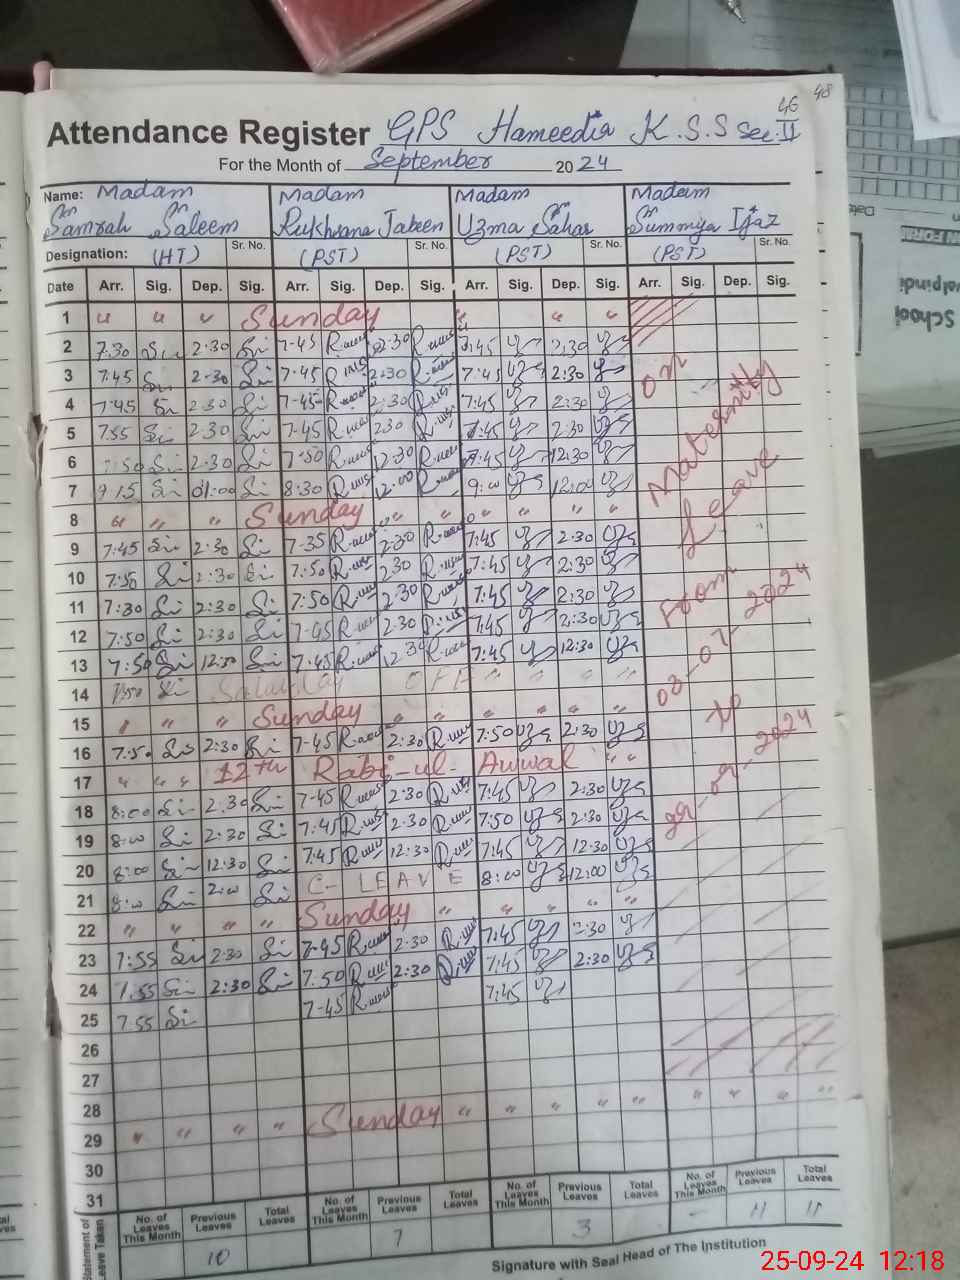 46 48
Attendance Register GPS Hameedia K.S.S Sec. II
For the Month of September 2024
Name: Madam Madam Madam Madam
Samrah Saleem Rukhsana Jabeen Uzma Sahar Summiya Ijaz
Sr. No. Sr. No. Sr. No. Sr. No.
Designation: (HT) (PST) (PST) (PST)
Date Arr. Sig. Dep. Sig. Arr. Sig. Dep. Sig. Arr. Sig. Dep. Sig. Arr. Sig. Dep. Sig.
1 " " " Sunday " " "
2 7:30 2:30 7-45 2:30 7:45 2:30
3 7:45 2:30 7-45 2:30 7:45 2:30 on
4 7:45 2:30 7-45 2:30 7:45 2:30
5 7:55 2:30 7-45 230 7:45 2:30 Maternity
6 7:50 2:30 7-50 12:30 7:45 12:30
7 9:15 01:00 8:30 12:00 9:00 12:00 Leave
8 " " " Sunday " " " " " "
9 7:45 2:30 7-35 2:30 7:45 2:30
10 7:50 2:30 7:50 2:30 7:45 2:30
11 7:30 2:30 7:50 2:30 7:45 2:30 From
12 7:50 2:30 7-45 2:30 7:45 2:30
13 7:50 12:30 7:45 12:30 7:45 12:30 2024
14 7:50 Saturday OFF " " " "
15 " " " Sunday " " " " " " to
16 7:50 2:30 7-45 2:30 7:50 2:30
17 " " " 12th Rabi-ul-Awwal " " 2024
18 8:00 2:30 7-45 2:30 7:45 2:30
19 8:00 2:30 7:45 2:30 7:50 2:30
20 8:00 12:30 7:45 12:30 7:45 12:30
21 8:00 2:00 C- LEAVE 8:00 12:00
22 " " " " Sunday " " " " "
23 7:55 2:30 7-45 2:30 7:45 2:30
24 7:55 2:30 7:50 2:30 7:45 2:30
25 7:55 7-45 7:45
26
27
28
29 " " " " Sunday " " " " " " " " "
30
31
Statement of Leave Taken
No. of Leaves This Month Previous Leaves Total Leaves No. of Leaves This Month Previous Leaves Total Leaves No. of Leaves This Month Previous Leaves Total Leaves No. of Leaves This Month Previous Leaves Total Leaves
10 7 3 - 11 11
Signature with Seal Head of The Institution
25-09-24 12:18